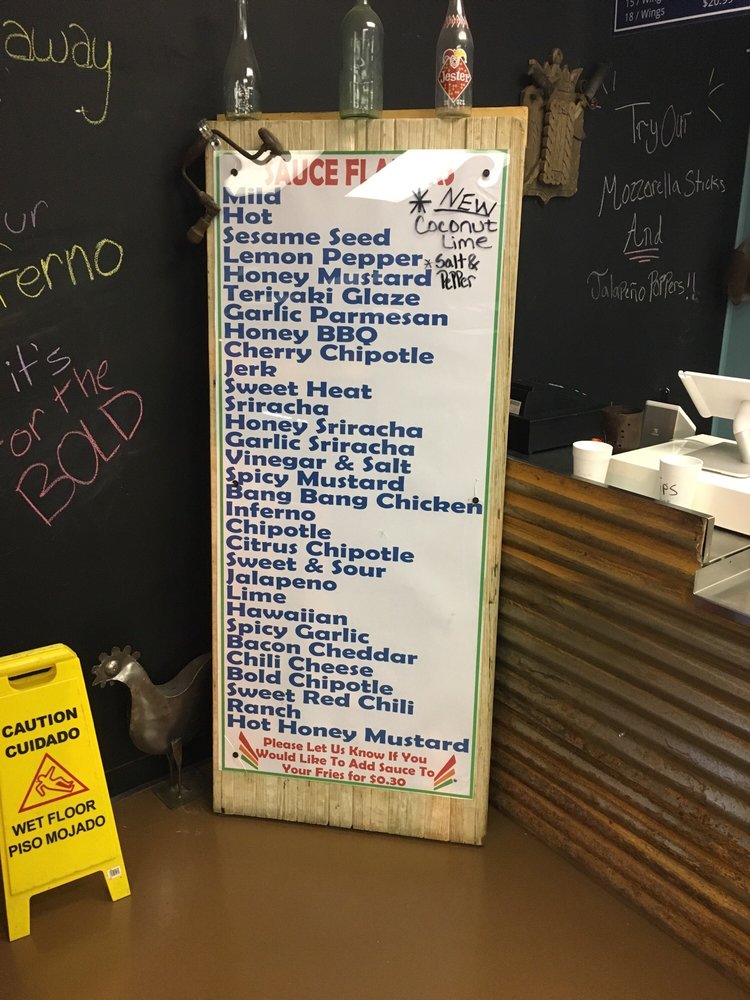 away
erno
it's
or the
BOLD
Jester
15 / Wing
18 / Wings
$20.
Try Our
Mozzorella Sticks
And
Jalapeño Poppers!!
SAUCE FLA
Mild
Hot
Sesame Seed
Lemon Pepper
Honey Mustard
Teriyaki Glaze
Garlic Parmesan
Honey BBQ
Cherry Chipotle
Jerk
Sweet Heat
Sriracha
Honey Sriracha
Garlic Sriracha
Vinegar & Salt
Spicy Mustard
Bang Bang Chicken
Inferno
Chipotle
Citrus Chipotle
Sweet & Sour
Jalapeno
Lime
Hawaiian
Spicy Garlic
Bacon Cheddar
Chili Cheese
Bold Chipotle
Sweet Red Chili
Ranch
Hot Honey Mustard
* NEW
Coconut
Lime
* Salt &
PePPer
Please Let Us Know If You
Would Like To Add Sauce To
Your Fries for $0.30
CAUTION
CUIDADO
WET FLOOR
PISO MOJADO